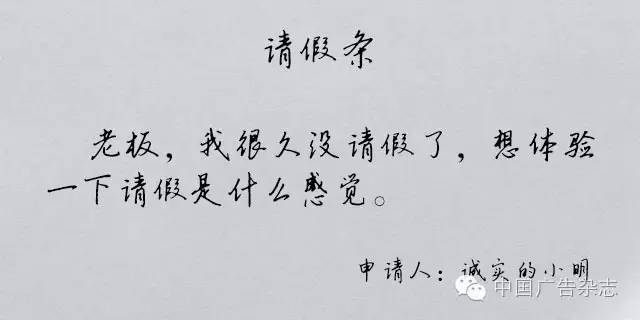 请假条
老板，我很久没请假了，想体验
一下请假是什么感觉。
申请人：诚实的小明
中国广告杂志